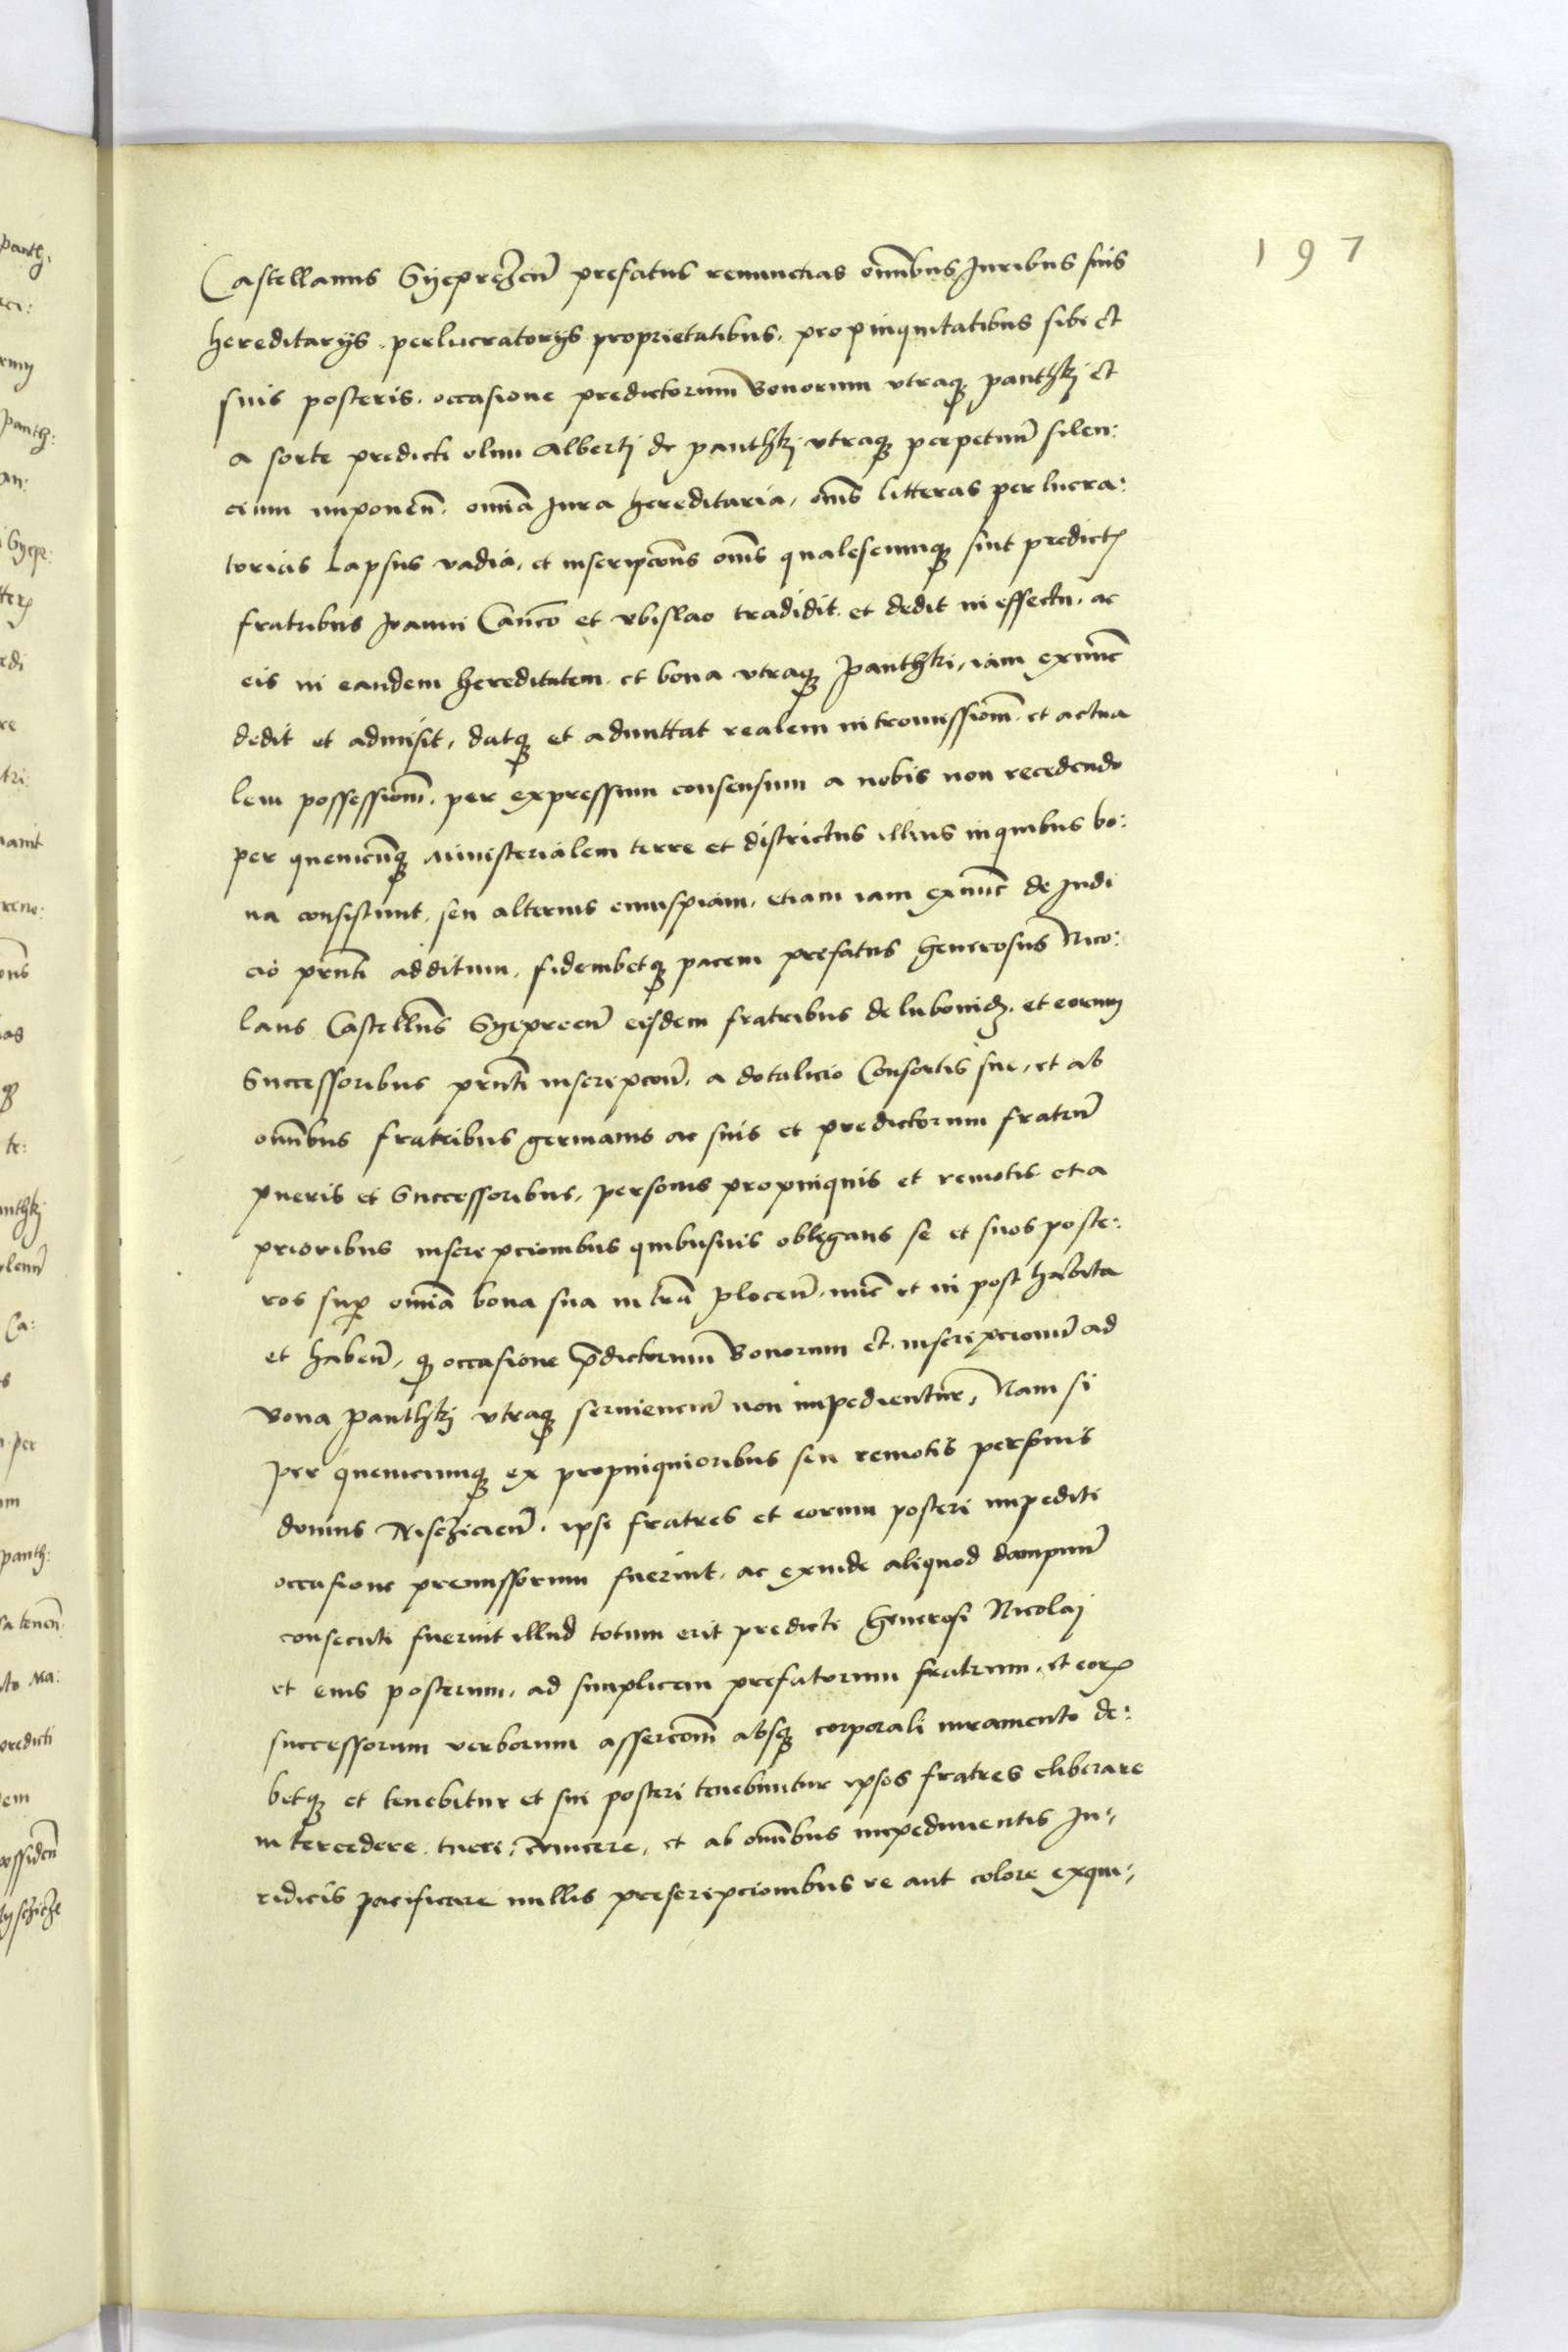 197
Castellanus Syeprczcn̄ prefatus renunctias om̄ibus Juribus suis
hereditarijs. perlucratorijs proprietatibus. propinquitatibus sibi et
suis posteris. occasione predictorum Bonorum vtraq̨ panthki et
a sorte predicti olim Albertj de panthkj vtraq̨ perpetuū silen:
cium imponēn. om̄ia Jura hereditaria, om̄s litteras perlucra:
torias Lapsus vadia, et inscripcōns om̄s qualescumq̨ sint predict
fratribus Joanni Canco et vbislao tradidit. et dedit in effectu. ac
eis in eandem hereditatem. et bona vtraq̨ panthki, iam exnūc
dedit et admisit, datq̨ et admittat realem intromissiom̄. et actua
lem possessiom̄. per expressum consensum a nobis non recedendo
per quemcūq̨ ministerialem terre et districtus illius in quibus bo:
na consistunt. seu alterius cuiuspiam. etiam iam exnūc de Judi
cio pn̄ti additum. fidembetq̨ pacem prefatus Generosus Nico:
laus Castellūs Syeprecn̄ eisdem fratribus de lubonidz. et eorum
Successoribus pn̄ti inscripcōn̄. a dotalicio Consortis sue, et ab
om̄ibus fratribus germanis ac suis et predictorum fratrū
pueris et Successoribus, personis propinquis et remotis et a
prioribus inscripcionibus quibusuis obligans se et suos poste:
ros sup om̄ia bona sua in trā plocen̄. nūc et in post habita
et haben̄. q̨ occasione p̄dictorum Bonorum et inscripcionū ad
Bona panthkj vtraq̨ seruiencīū non impedientur, Nam si
per quemcumq̨ ex propinquioribus seu remotis personis
domus Nisczicien̄. ipsi fratres et eorum posteri impediti
occasione premissorum fuerint. ac exinde aliquod dampnū
consecuti fuerint illud totum erit predicti Generosi Nicolaj
et eius posterum. ad simplicem prefatorum fratrum. et eor
successorum verborum assercōm̄ absq̨ corporali iuramento de:
betq̨ et tenebitur et sui posteri tenebuntur ipsos fratres eliberare
intercedere. tueri. euincere, et ab om̄ibus impedimentis Ju:
ridicis pacificare nullis prescripcionibus re aut colore exqui: